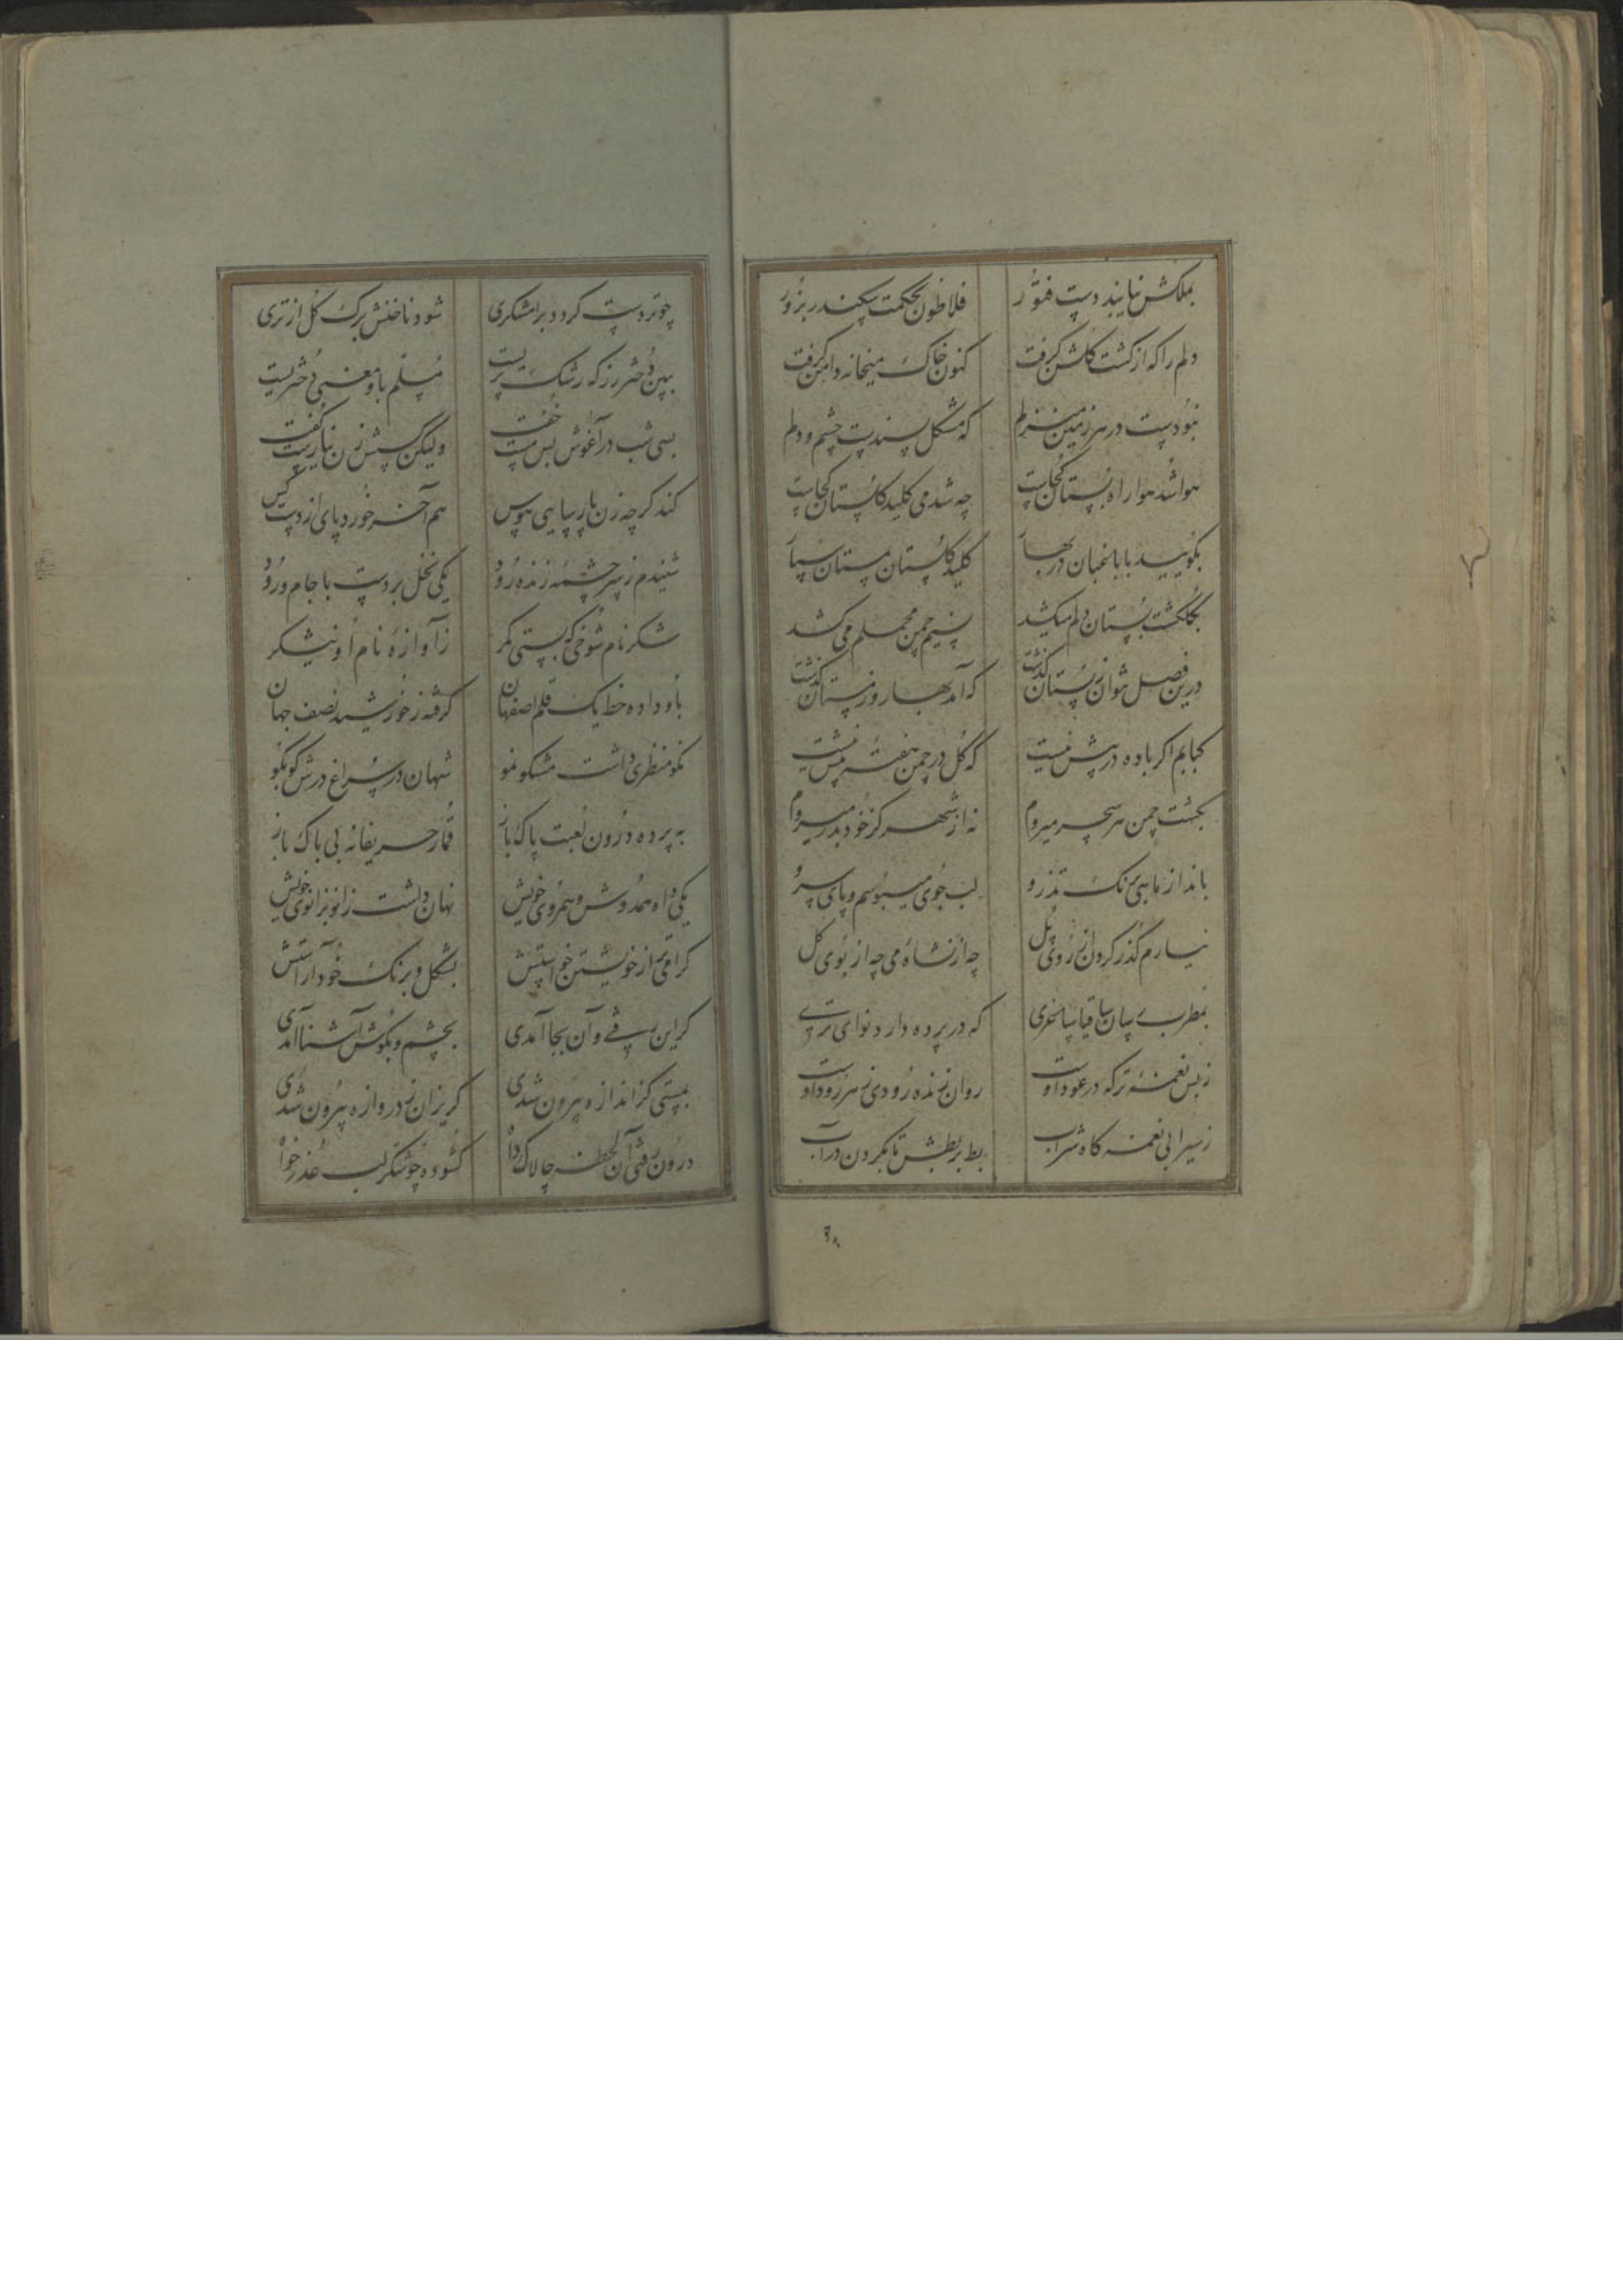 بملکش نیابند دست فتور فلاطون بحکمت سکندر بزور
دلم را که از کشت کلشن کرفت کنون خاک میخانه دامن کرفت
نبودست در هر زمین منزلم که مشکل پسندست چشم و دلم
هوا شد هوا راه بستان کجاست چه شد می کلید کلستان کجاست
بکویید با باغبان در بهار کلید کلستان بمستان سپار
بکلکشت بستان دلم میکشد نسیم چمن محملم می کشد
درین فصل نتوان ز بستان کذشت که آمد بهار و زمستان کذشت
کبابم اکر باده در پیش نیست که کل در چمن هفتهٔ بیش نیست
بکشت چمن هر سحر میروم نه از شهر کز خود بدر میروم
بانداز ماهی برنک تذرو لب جوی میبوسم و پای سرو
نیارم کذر کردن از روی پل چه از نشاهٔ می چه از بوی کل
بمطرب رسان ساقیا ساغری که در پرده دارد نوای تری
ز بس نغمهٔ تر که در عود اوست روان زنده رودی ز هر رود اوست
ز سیرابی نغمه کاه شراب بط بربطش تا بکردن در آب
چو تردست کردد برامشکری شود ناخنش برک کل از تری
ببین دختر رز که رشک پریست مسلم باو منصب دخترست
بسی شب در آغوش بس مست خفت ولیکن سخن زن نیاریست کفت
کند کرچه زن پارسایی هوس هم آخر خورد پای از دست کس
شنیدم ز سرچشمهٔ زنده رود یکی نخل بردست با جام و رود
شکر نام شوخی که بستی کمر ز آوازهٔ نام او نیشکر
باو داده خط یک قلم اصفهان کرفته ز خورشید نصف جهان
نکو منظری داشت مشکو نمو شهان در سراغ درش کو بکو
به پرده درون لعبت پاک باز قمار حریفانه بی باک باز
یکی داه همدوش و همروی خویش نهان داشت زانو بزانوی خویش
کرامی تر از خویشتن خواستیش بشکل و برنک خود آراستیش
کر این رفتی و آن بجا آمدی بچشم و بکوش آشنا آمدی
بمستی کز اندازه بیرون شدی کریزان ز دروازه بیرون شدی
درون رفتی آن لحظه چالاک داه کشوده چو شکر لب عذر خواه